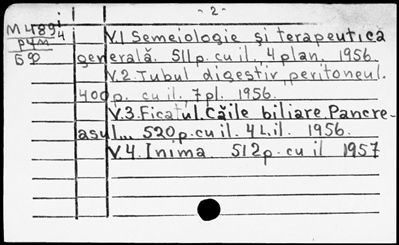 - 2 -
M4891/4
РУМ
Б92
V.1 Semeiologie şi terapeutică
generală. 511 p. cu il., 4 plan. 1956.
V.2. Tubul digestiv, peritoneul.
400 p. cu il. 7 pl. 1956.
V.3. Ficatul. Căile biliare. Pancre-
asul... 520 p. cu il. 4 l. il. 1956.
V.4. Inima. 512 p. cu il 1957